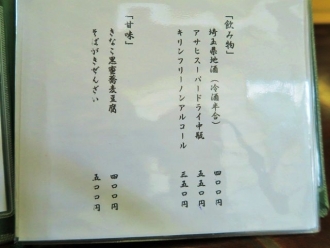 「飲み物」
埼玉県地酒(冷酒半合) 四〇〇円
アサヒスーパードライ中瓶 五五〇円
キリンフリーノンアルコール 三五〇円
「甘味」
きなこ黒蜜蕎麦豆腐 四〇〇円
そばがきぜんざい 五〇〇円